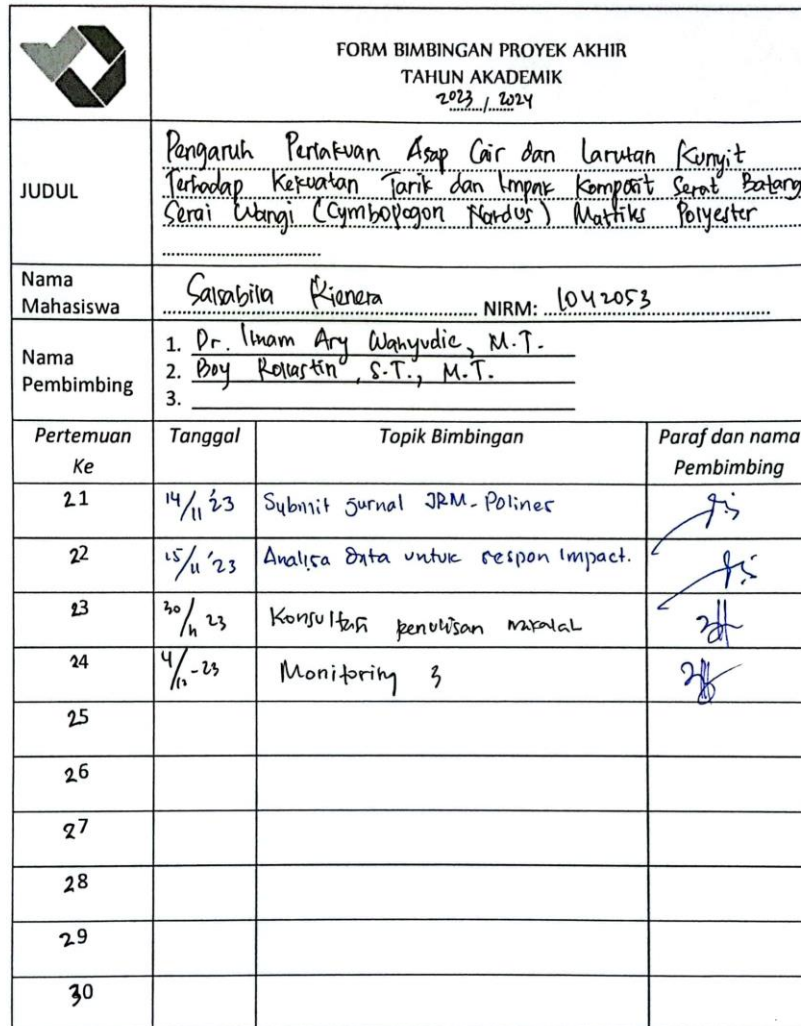 FORM BIMBINGAN PROYEK AKHIR
TAHUN AKADEMIK
2023 / 2024
JUDUL
Pengaruh Perlakuan Asap Cair dan Larutan Kunyit
Terhadap Kekuatan Tarik dan Impak Komposit Serat Batang
Serai Wangi (Cymbopogon Nardus) Matriks Polyester
Nama Mahasiswa
Salsabilla Rienera NIRM: 1042053
Nama Pembimbing
1. Dr. Ilham Ary Wahyudie, M.T.
2. Boy Rollastin, S.T., M.T.
3.
Pertemuan Ke Tanggal Topik Bimbingan Paraf dan nama Pembimbing
21 14/11 '23 Submit Jurnal JRM-Polines
22 15/11 '23 Analisa Data untuk respon Impact.
23 30/11 23 Konsultasi penulisan makalah
24 4/12-23 Monitoring 3
25
26
27
28
29
30